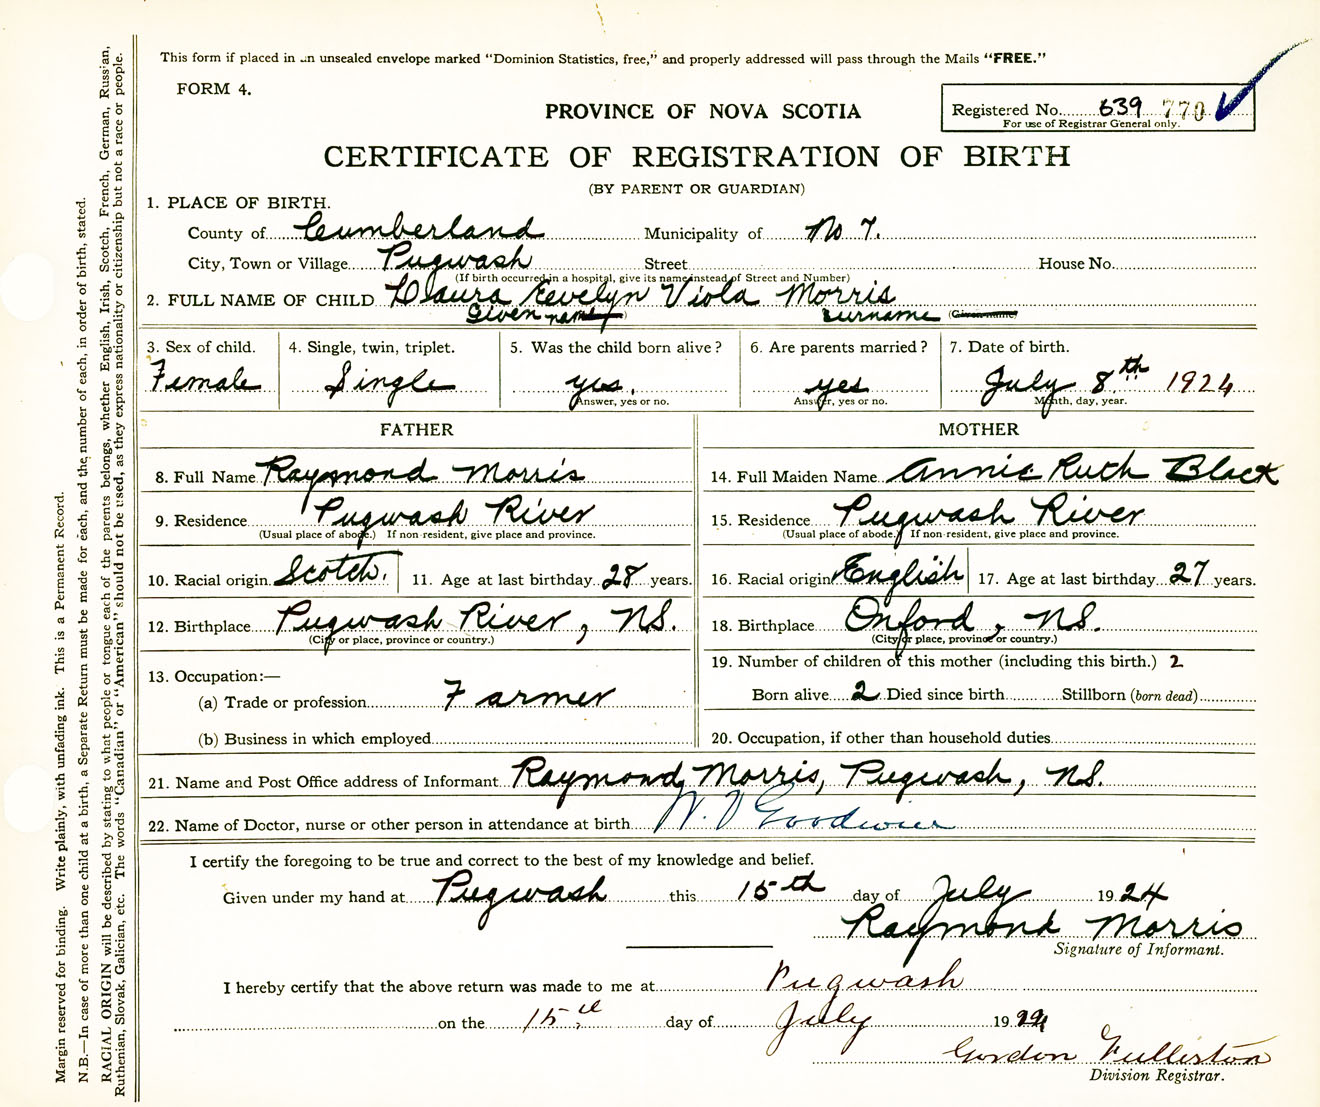 This form if placed in an unsealed envelope marked "Dominion Statistics, free," and properly addressed will pass through the Mails "FREE."
FORM 4.
PROVINCE OF NOVA SCOTIA
Registered No. 639 770
For use of Registrar General only.
CERTIFICATE OF REGISTRATION OF BIRTH
(BY PARENT OR GUARDIAN)
1. PLACE OF BIRTH.
County of Cumberland Municipality of No 7.
City, Town or Village Pugwash Street House No.
(If birth occurred in a hospital, give its name instead of Street and Number)
2. FULL NAME OF CHILD Laura Evelyn Viola Morris
Given name surname (Given name)
3. Sex of child. 4. Single, twin, triplet. 5. Was the child born alive? 6. Are parents married? 7. Date of birth.
Female Single yes. yes July 8th 1924
Answer, yes or no. Answer, yes or no. Month, day, year.
FATHER MOTHER
8. Full Name Raymond Morris 14. Full Maiden Name Annie Ruth Black
9. Residence Pugwash River 15. Residence Pugwash River
(Usual place of abode.) If non-resident, give place and province. (Usual place of abode.) If non-resident, give place and province.
10. Racial origin Scotch. 11. Age at last birthday 28 years. 16. Racial origin English 17. Age at last birthday 27 years.
12. Birthplace Pugwash River, NS. 18. Birthplace Oxford, NS.
(City or place, province or country.) (City or place, province or country.)
19. Number of children of this mother (including this birth.) 2
13. Occupation:—
(a) Trade or profession Farmer Born alive 2 Died since birth Stillborn (born dead)
(b) Business in which employed 20. Occupation, if other than household duties
21. Name and Post Office address of Informant Raymond Morris, Pugwash, NS.
22. Name of Doctor, nurse or other person in attendance at birth Goodwin
I certify the foregoing to be true and correct to the best of my knowledge and belief.
Given under my hand at Pugwash this 15th day of July 1924
Raymond Morris
Signature of Informant.
I hereby certify that the above return was made to me at Pugwash
on the 15th day of July 1924
Gordon Fullerton
Division Registrar.
Margin reserved for binding. Write plainly, with unfading ink. This is a Permanent Record.
N.B.—In case of more than one child at a birth, a Separate Return must be made for each, and the number of each, in order of birth, stated.
RACIAL ORIGIN will be described by stating to what people or tongue each of the parents belongs, whether English, Irish, Scotch, French, German, Russian,
Ruthenian, Slovak, Galician, etc. The words "Canadian" or "American" should not be used, as they express nationality or citizenship but not a race or people.